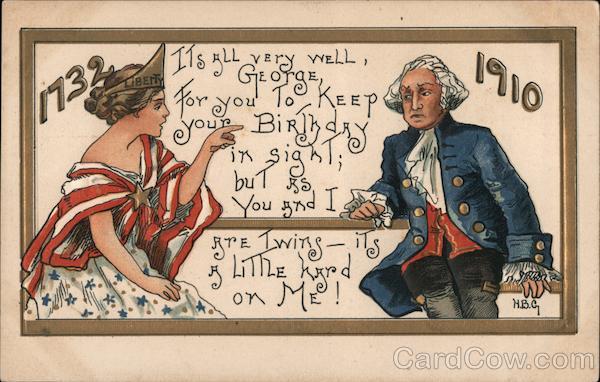 1732
LIBERTY
1910
It's all very well,
George,
For you To Keep
your Birthday
in sight;
but as
You and I
are Twins—its
a Little hard
on Me!
H.B.G.
CardCow.com